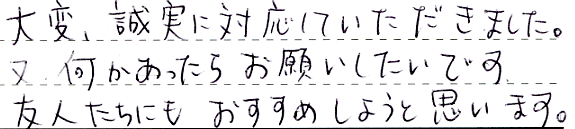 大変、誠実に対応していただきました。
又、何かあったらお願いしたいです
友人たちにもおすすめしようと思います。